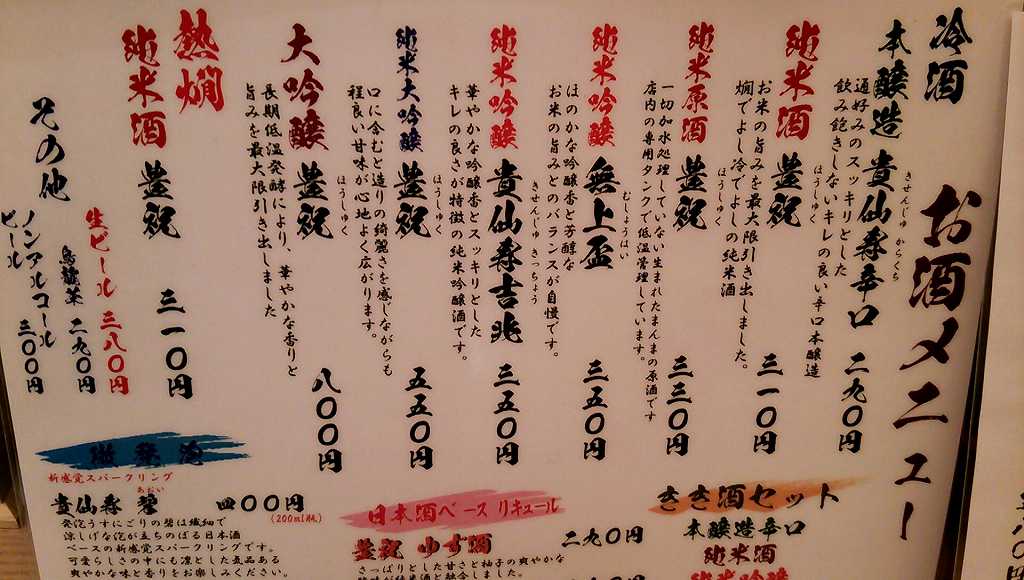 お酒メニュー
冷酒
本醸造 貴仙寿辛口 二九〇円
きせんじゅ からくち
通好みのスッキリとした
飲み飽きしないキレの良い辛口本醸造
純米酒 豊祝 三一〇円
ほうしゅく
お米の旨みを最大限引き出しました。
燗でよし冷でよしの純米酒
純米原酒 豊祝 三三〇円
ほうしゅく
一切加水処理していない生まれたまんまの原酒です
店内の専用タンクで低温管理しています。
純米吟醸 無上盃 三五〇円
むじょうはい
ほのかな吟醸香と芳醇な
お米の旨みとのバランスが自慢です。
純米吟醸 貴仙寿吉兆 三五〇円
きせんじゅ きっちょう
華やかな吟醸香とスッキリとした
キレの良さが特徴の純米吟醸酒です。
純米大吟醸 豊祝 五五〇円
ほうしゅく
口に含むと造りの綺麗さを感じながらも
程良い甘味が心地よく広がります。
大吟醸 豊祝 八〇〇円
ほうしゅく
長期低温発酵により、華やかな香りと
旨みを最大限引き出しました
熱燗
純米酒 豊祝 三一〇円
その他
生ビール 三八〇円
烏龍茶 二九〇円
ノンアルコール
ビール 三〇〇円
微発泡
新感覚スパークリング
貴仙寿 碧 四〇〇円
あおい
(200ml瓶)
発泡うすにごりの碧は繊細で
涼しげな泡が立ちのぼる日本酒
ベースの新感覚スパークリングです。
可愛らしさの中にも凛とした気品ある
爽やかな味と香りをお楽しみください。
日本酒ベース リキュール
豊祝 ゆず酒 二九〇円
さっぱりとした甘さと柚子の爽やかな
きき酒セット
本醸造辛口
純米酒
純米吟醸